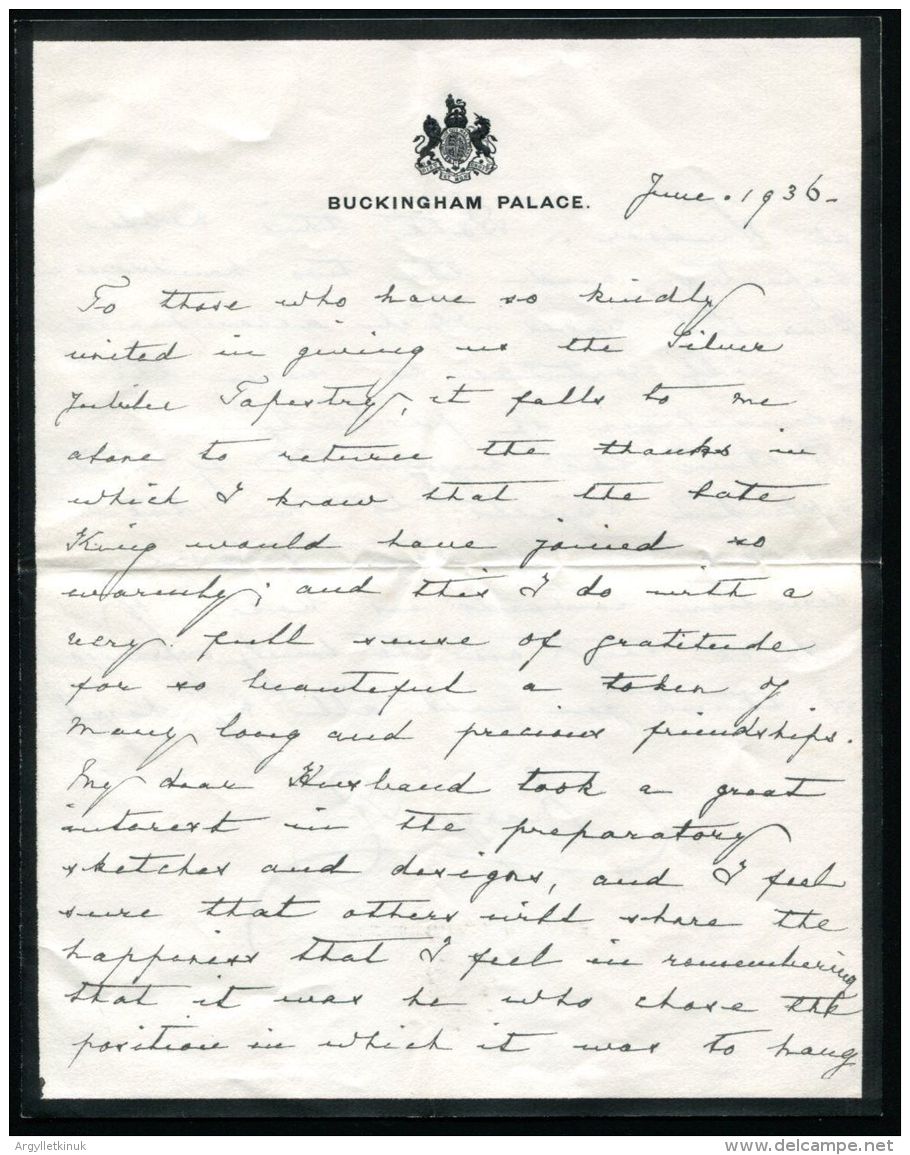 BUCKINGHAM PALACE.
June. 1936-
To those who have so kindly
united in giving us the Silver
Jubilee Tapestry, it falls to me
alone to return the thanks in
which I know that the late
King would have joined so
warmly; and this I do with a
very full sense of gratitude
for so beautiful a token of
many long and precious friendships.
My dear Husband took a great
interest in the preparatory
sketches and designs, and I feel
sure that others will share the
happiness that I feel in remembering
that it was he who chose the
position in which it was to hang
Argylletkinuk
www.delcampe.net